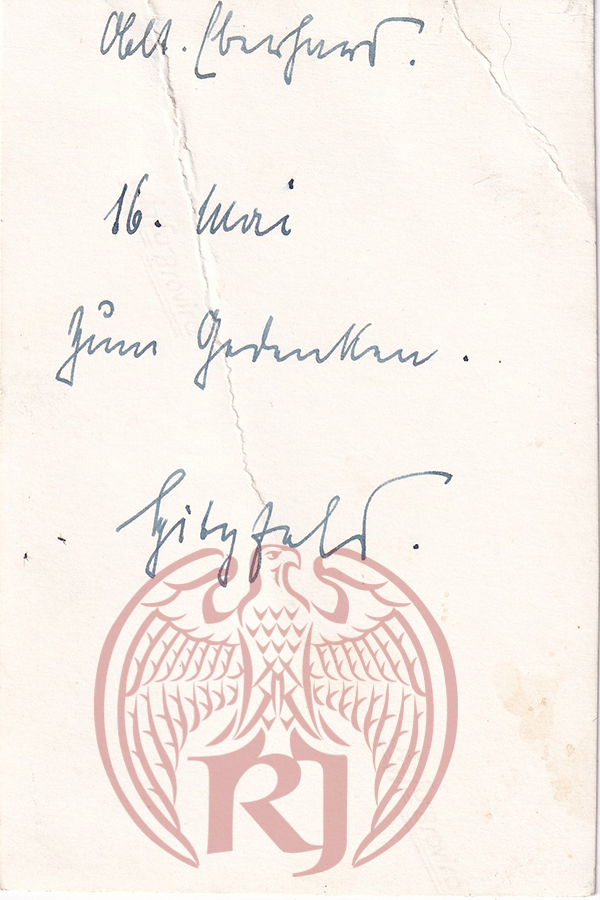 Oblt. Eberhard.
16. Mai
Zum Gedenken.
Hitzfeld.
RJ